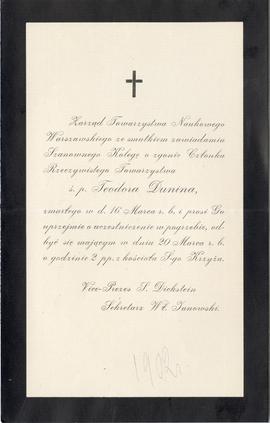 Zarząd Towarzystwa Naukowego
Warszawskiego ze smutkiem zawiadamia
Szanownego Kolegę o zgonie Członka
Rzeczywistego Towarzystwa
ś. p. Teodora Dunina,
zmarłego w d. 16 Marca r. b. i prosi Go
uprzejmie o uczestniczenie w pogrzebie, od-
być się mającym w dniu 20 Marca r. b.
o godzinie 2 pp. z kościoła Ś-go Krzyża.
Vice-Prezes S. Dickstein
Sekretarz Wł. Janowski.